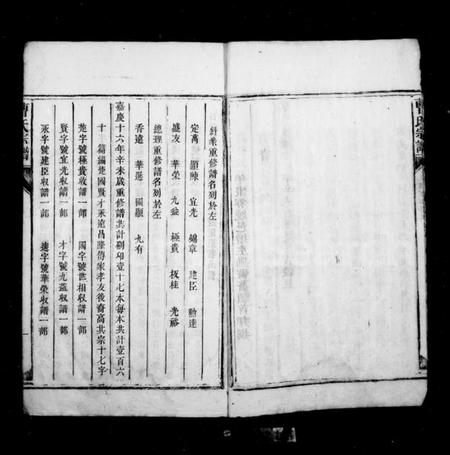 纠素重修譜名列於左
定萬 顯陳 宜光 錦章 建臣 勳達
盛友 華榮 九益 極貴 板桂 光裕
總理重修譜名列於左
香遠 華選 國顯 九有
嘉慶十六年辛未歲重修譜共計刷印壹十七本每本共計壹百六
十 篇編楚國賢才永遠昌隆傳宋孝友後裔高共宗十七字
楚字號極貴收譜一部 國字號世相收譜一部
賢字號宜光收譜一部 才字號九益收譜一部
永字號建臣收譜一部 遠字號華榮收譜一部
曹氏宗譜
曹氏宗譜